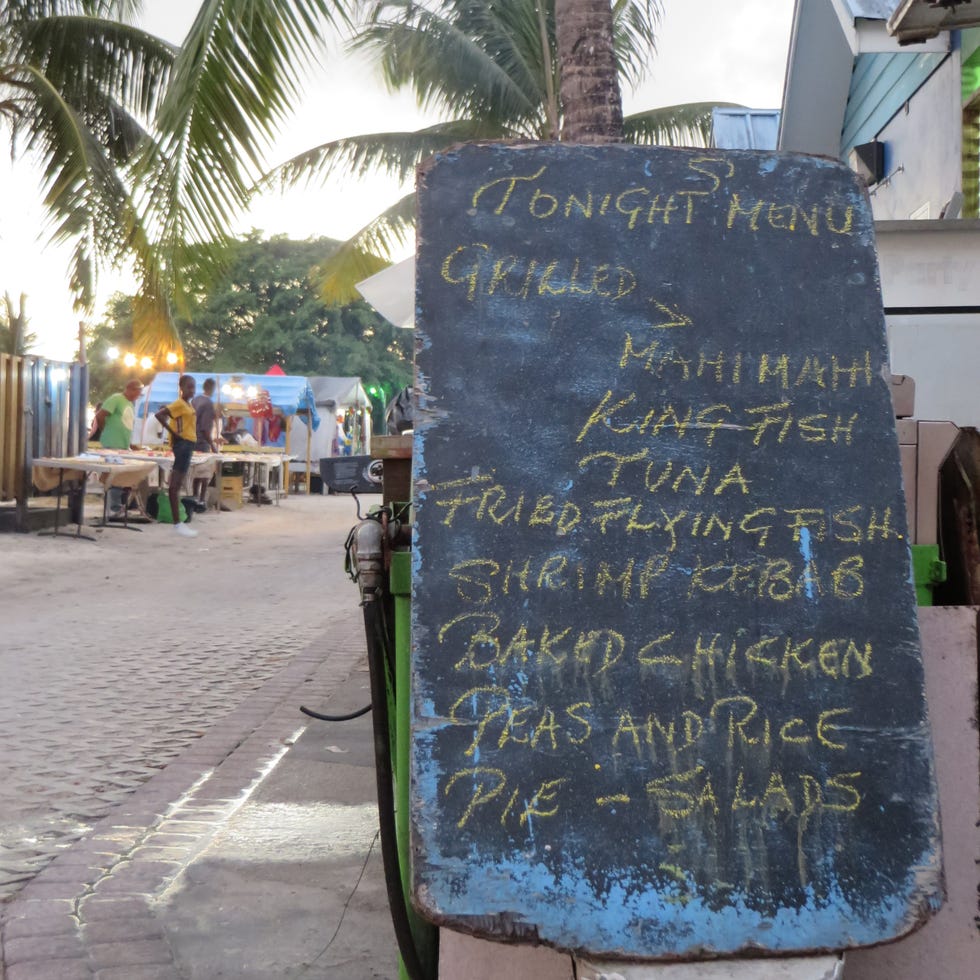 TONIGHT'S MENU
GRILLED >
MAHI MAHI
KING FISH
TUNA
FRIED FLYING FISH.
SHRIMP KEBAB
BAKED CHICKEN
PEAS AND RICE
PIE - SALADS